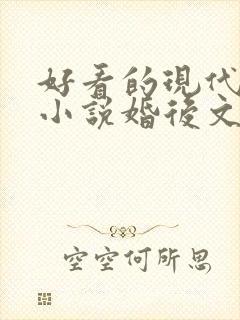 好看的現代
小說婚後文
空空何所思